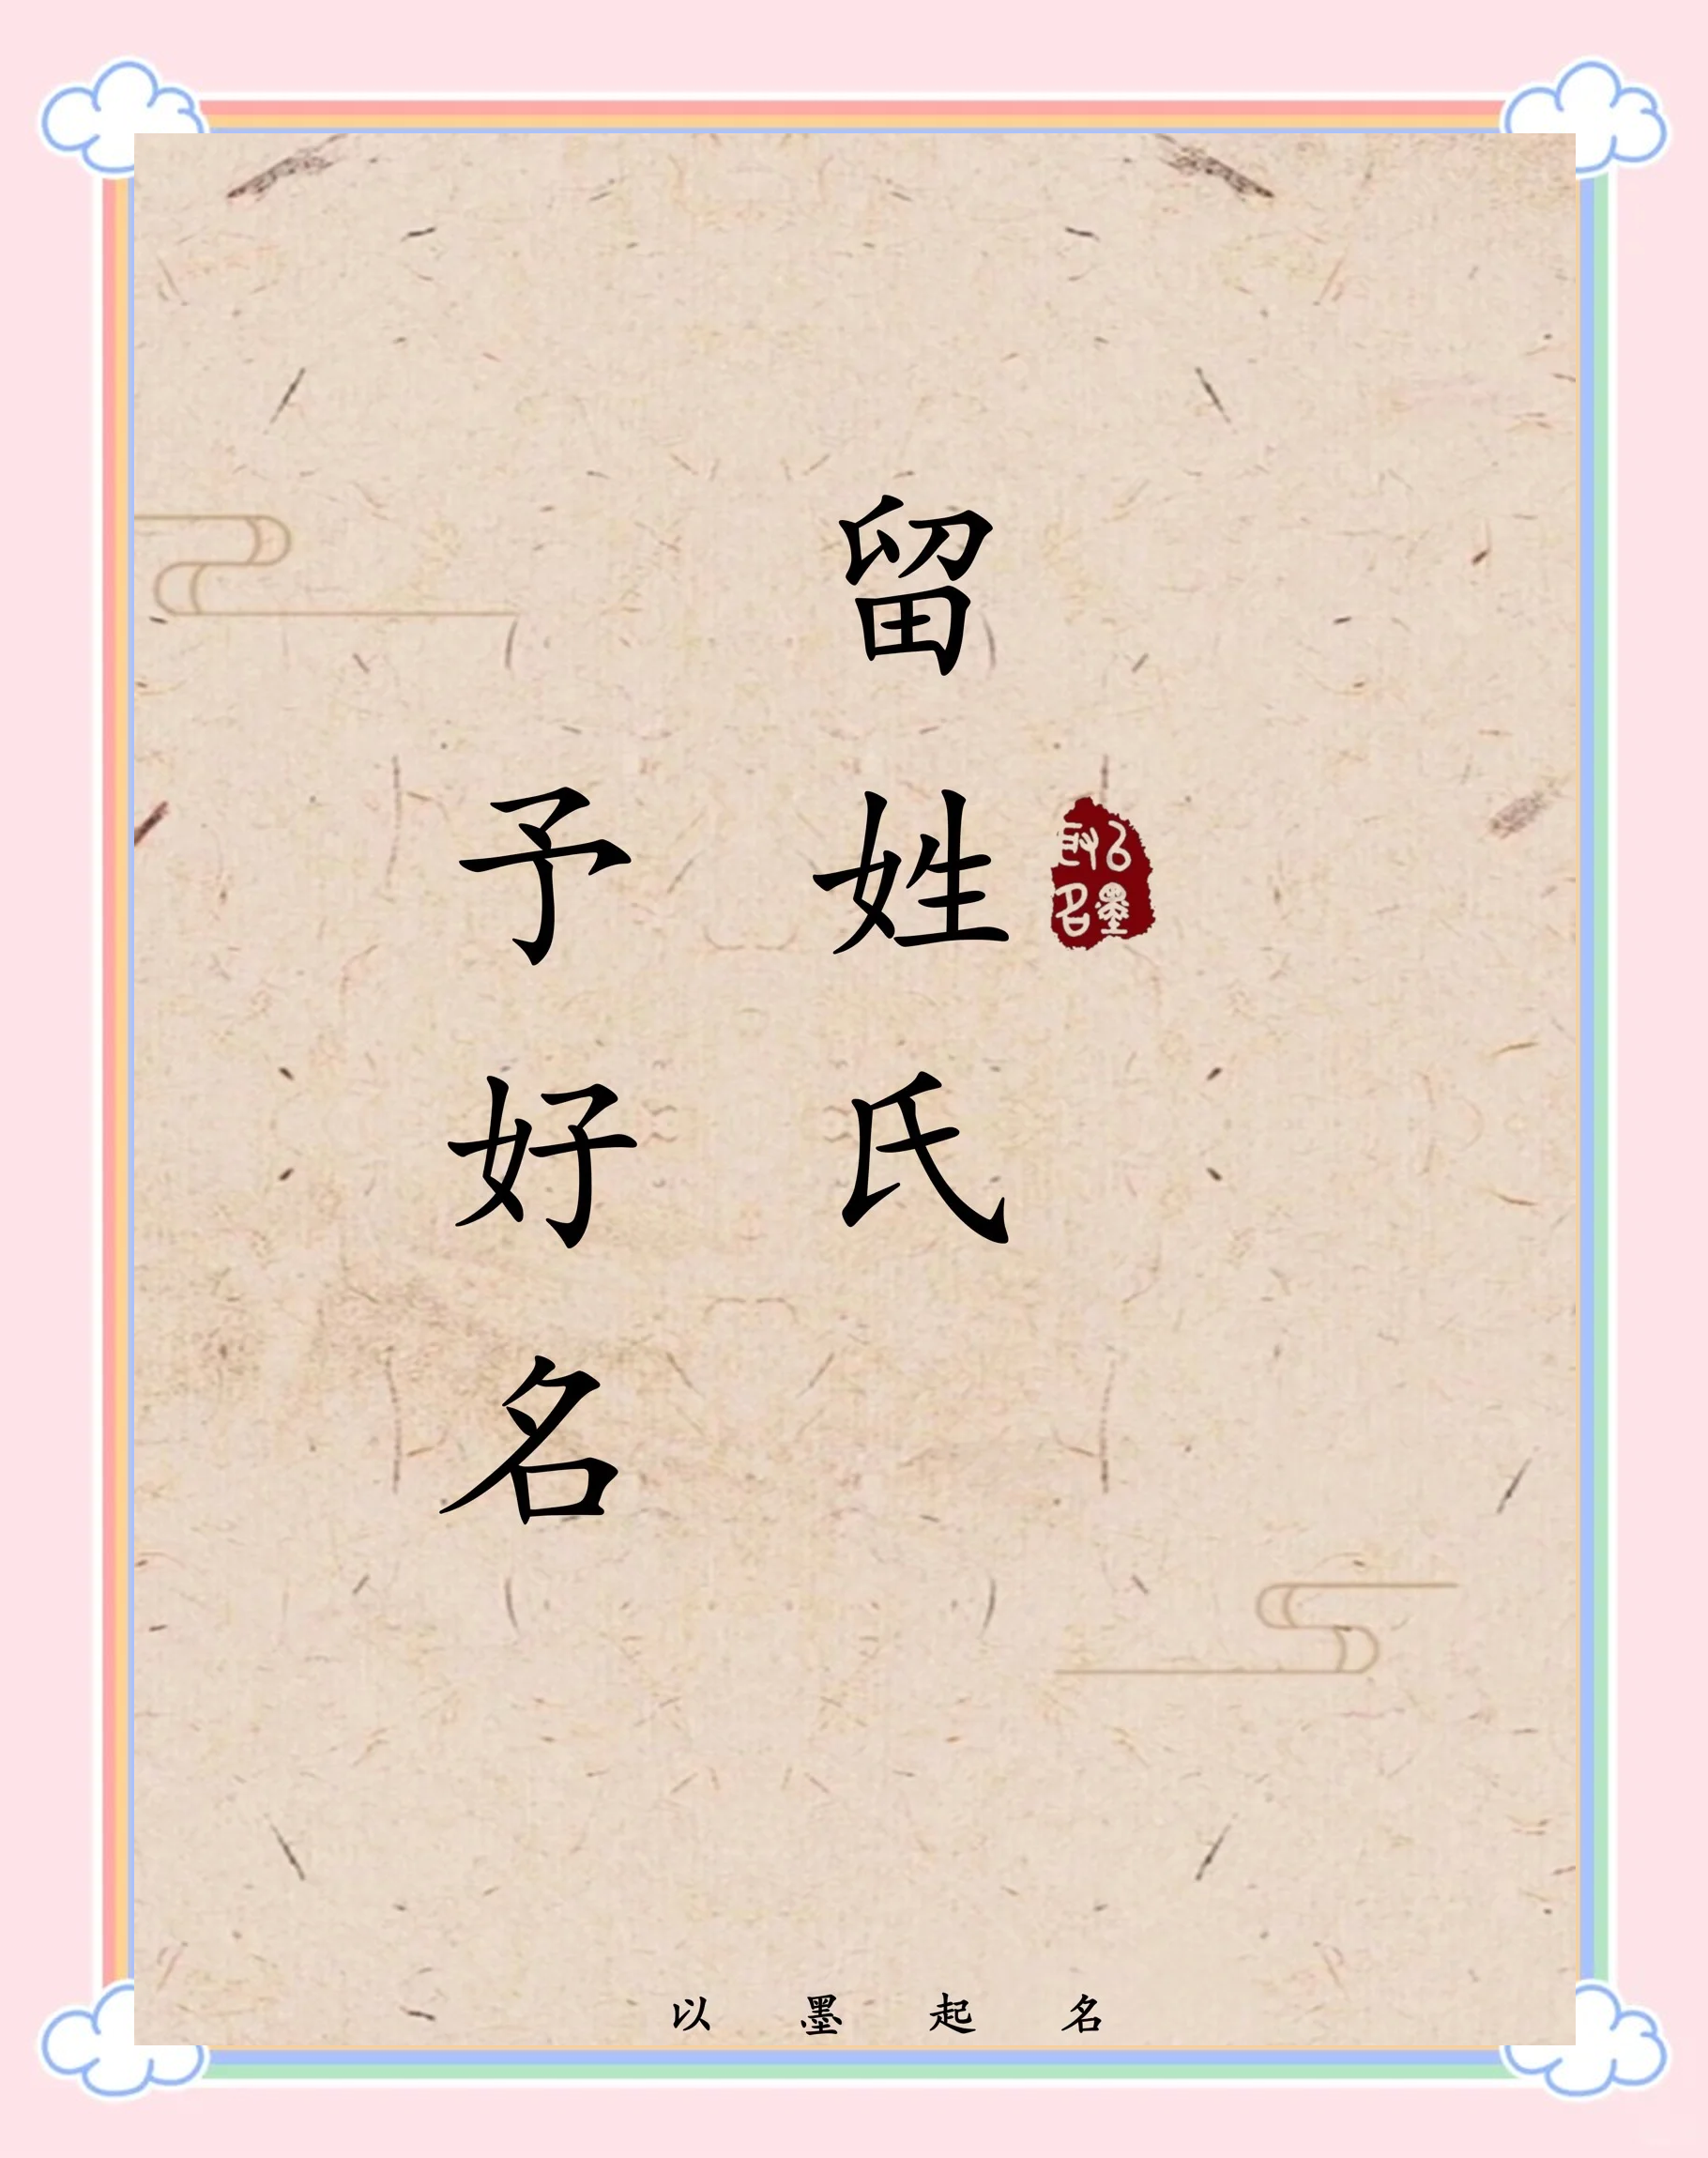 留姓氏
予好名
以墨起名
以墨起名